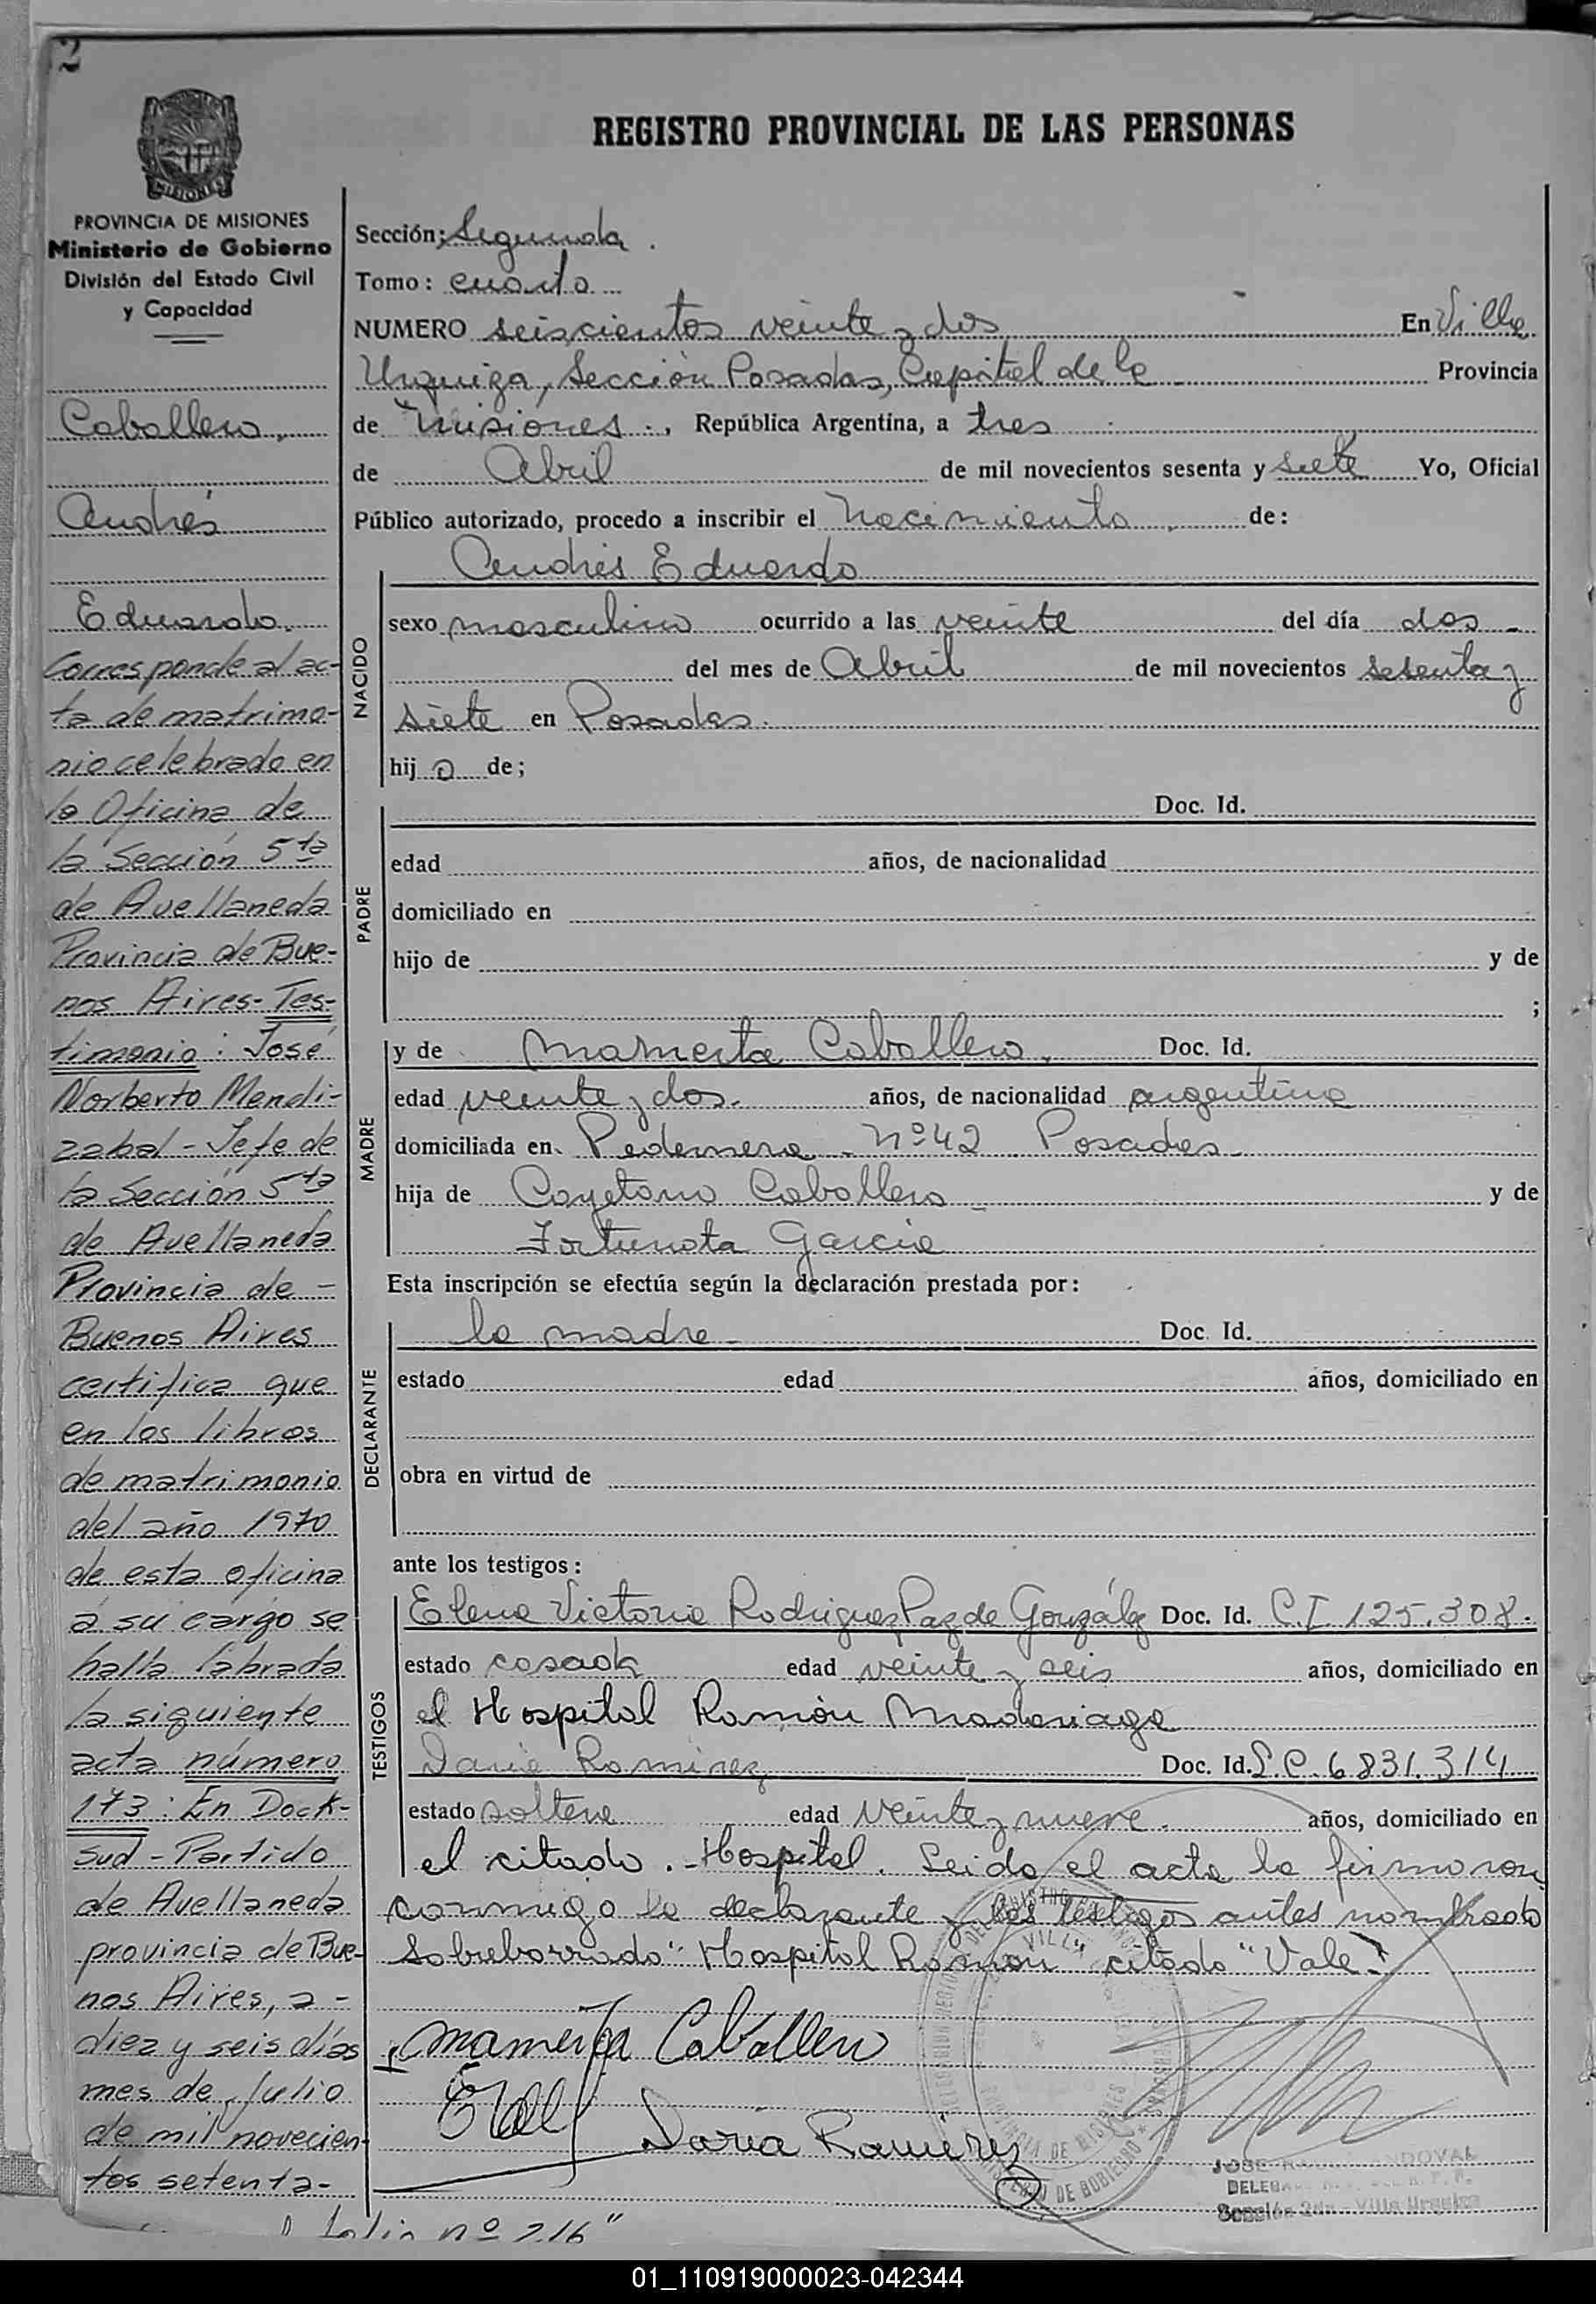 2
MISIONES
PROVINCIA DE MISIONES
Ministerio de Gobierno
División del Estado Civil
y Capacidad
Caballero,
Andrés
Eduardo.
Corresponde al ac-
ta de matrimo-
nio celebrado en
la Oficina de
la Sección 5ta
de Avellaneda
Provincia de Bue-
nos Aires- Tes-
timonio: José
Norberto Mendi-
zabal - Jefe de
la Sección 5ta
de Avellaneda
Provincia de -
Buenos Aires
certifica que
en los libros
de matrimonio
del año 1970
de esta oficina
a su cargo se
halla labrada
la siguiente
acta número
173: En Dock-
Sud - Partido
de Avellaneda
provincia de Bue-
nos Aires, a -
diez y seis días
mes de Julio
de mil novecien-
tos setenta-
" folio nº 216"
REGISTRO PROVINCIAL DE LAS PERSONAS
Sección: Segunda.
Tomo: cuarto
NUMERO seiscientos veinte y dos En Villa
Urquiza, Sección Posadas, Capital de la Provincia
de Misiones., República Argentina, a tres
de Abril de mil novecientos sesenta y siete Yo, Oficial
Público autorizado, procedo a inscribir el Nacimiento de:
Andrés Eduardo
NACIDO
sexo masculino ocurrido a las veinte del día dos -
del mes de Abril de mil novecientos sesenta y
siete en Posadas.
hij o de;
PADRE
Doc. Id.
edad años, de nacionalidad
domiciliado en
hijo de y de
;
MADRE
y de Mamerta Caballero, Doc. Id.
edad veinte y dos. años, de nacionalidad argentina
domiciliada en Pedernera - Nº 42 Posadas
hija de Cayetano Caballero y de
Fortunata Garcia
Esta inscripción se efectúa según la declaración prestada por:
DECLARANTE
la madre - Doc. Id.
estado edad años, domiciliado en
obra en virtud de
ante los testigos:
TESTIGOS
Elena Victoria Rodriguez Paz de González Doc. Id. C.I 125.308.
estado casada edad veinte y seis años, domiciliado en
el Hospital Ramón Madariaga
Daria Ramirez Doc. Id. L.C. 6831.314
estado soltera edad veinte y nueve. años, domiciliado en
el citado.- Hospital. Leido el acta la firmaron
conmigo la declarante y los testigos antes nombrado
Sobreborrado "Hospital Ramon citado" Vale.
Mamerta Caballero
Daria Ramirez
JOSE SANDOVAL
Sección 2da - Villa Urquiza
01_110919000023-042344